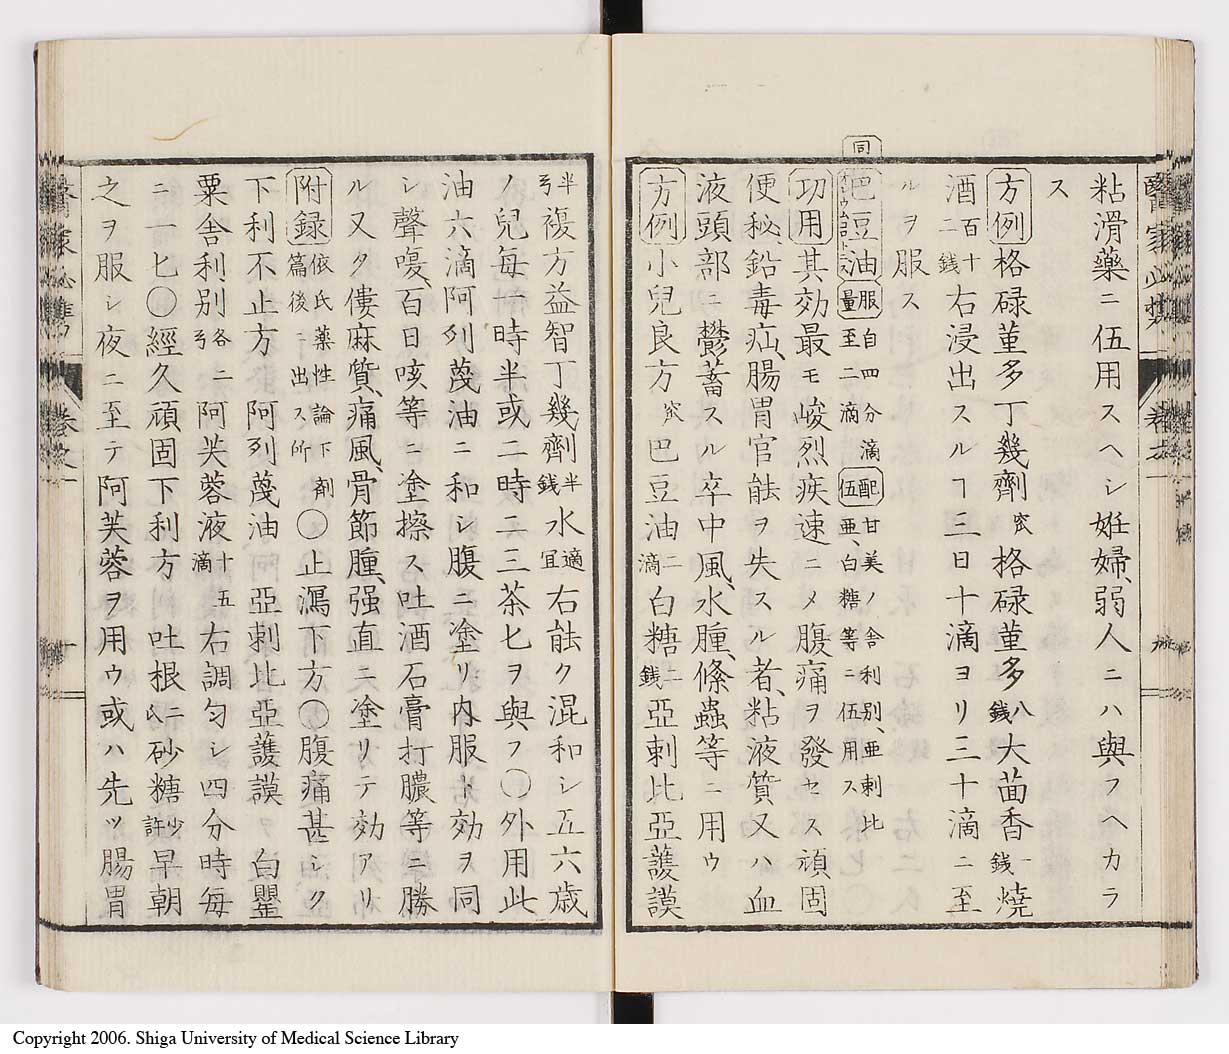 粘滑藥ニ伍用スヘシ妊婦、弱人ニハ與フヘカラ
ス
方例 格碌菫多丁幾劑 窊 格碌菫多 八錢 大茴香 一錢 燒
酒 百十二錢 右浸出スルヿ三日十滴ヨリ三十滴ニ至
ルヲ服ス
同
巴豆油 服量 自四分滴至二滴 配伍 甘美ノ舍利別、亜剌比亜、白糖等ニ伍用ス
功用 其効最モ峻烈疾速ニメ腹痛ヲ發セス頑固
便秘、鉛毒疝、腸胃官能ヲ失スル者、粘液質又ハ血
液頭部ニ鬱蓄スル卒中風、水腫、條蟲等ニ用ウ
方例 小兒良方 窊 巴豆油 二滴 白糖 二錢 亞剌比亞護謨
半弓 複方益智丁幾劑 半錢 水 適宜 右能ク混和シ五六歳
ノ兒毎一時半或二時二三茶匕ヲ與フ〇外用此
油六滴阿列蕿油ニ和シ腹ニ塗リ内服ト効ヲ同
シ聲嗄、百日咳等ニ塗擦ス吐酒石膏打膿等ニ勝
ル又タ僂麻質、痛風、骨節腫、强直ニ塗リテ効アリ
附録 依氏藥性論下劑篇後ニ出ス所 〇止瀉下方〇腹痛甚シク
下利不止方 阿列蕿油 亞剌比亞護謨 白罌
粟舍利別 各二弓 阿芙蓉液 十五滴 右調匀シ四分時毎
ニ一匕〇經久頑固下利方 吐根 二氏 砂糖 少許 早朝
之ヲ服シ夜ニ至テ阿芙蓉ヲ用ウ或ハ先ツ腸胃